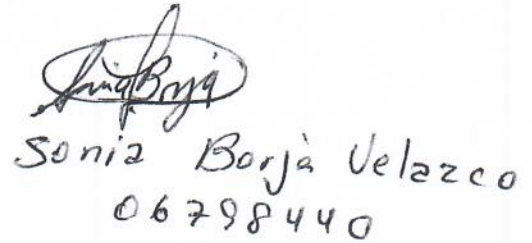 Sonia Borja
Sonia Borjà Velazco
06798440